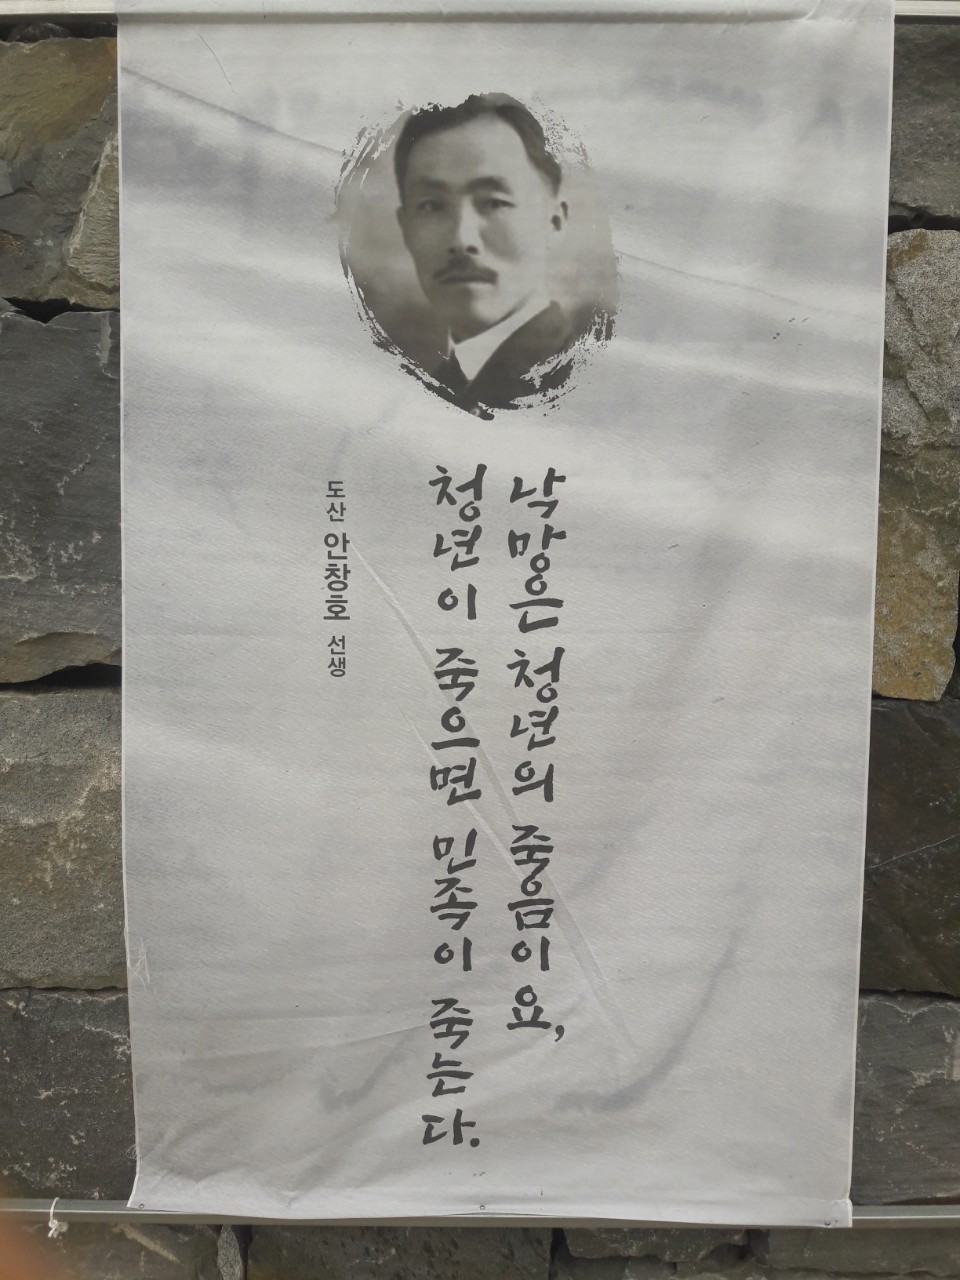 낙망은 청년의 죽음이요,
청년이 죽으면 민족이 죽는다.
도산 안창호 선생